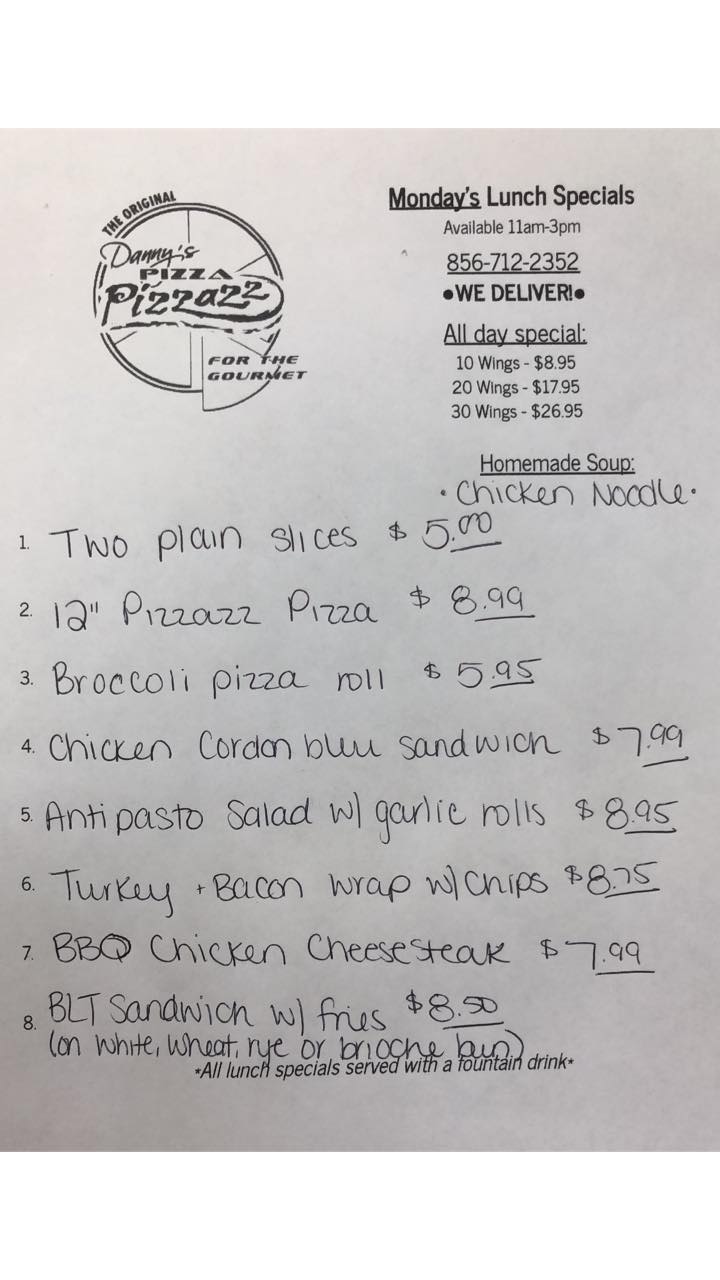 THE ORIGINAL
Danny's
PIZZA
Pizzazz
FOR THE
GOURMET
Monday's Lunch Specials
Available 11am-3pm
856-712-2352
•WE DELIVER!•
All day special:
10 Wings - $8.95
20 Wings - $17.95
30 Wings - $26.95
Homemade Soup:
• Chicken Noodle •
1. Two plain slices $ 5.00
2. 12" Pizzazz Pizza $ 8.99
3. Broccoli pizza roll $ 5.95
4. Chicken Cordon bleu sandwich $ 7.99
5. Antipasto Salad w/ garlic rolls $ 8.95
6. Turkey + Bacon wrap w/ Chips $8.75
7. BBQ Chicken Cheesesteak $ 7.99
8. BLT Sandwich w/ fries $8.50
(on white, wheat, rye or brioche bun)
*All lunch specials served with a fountain drink*